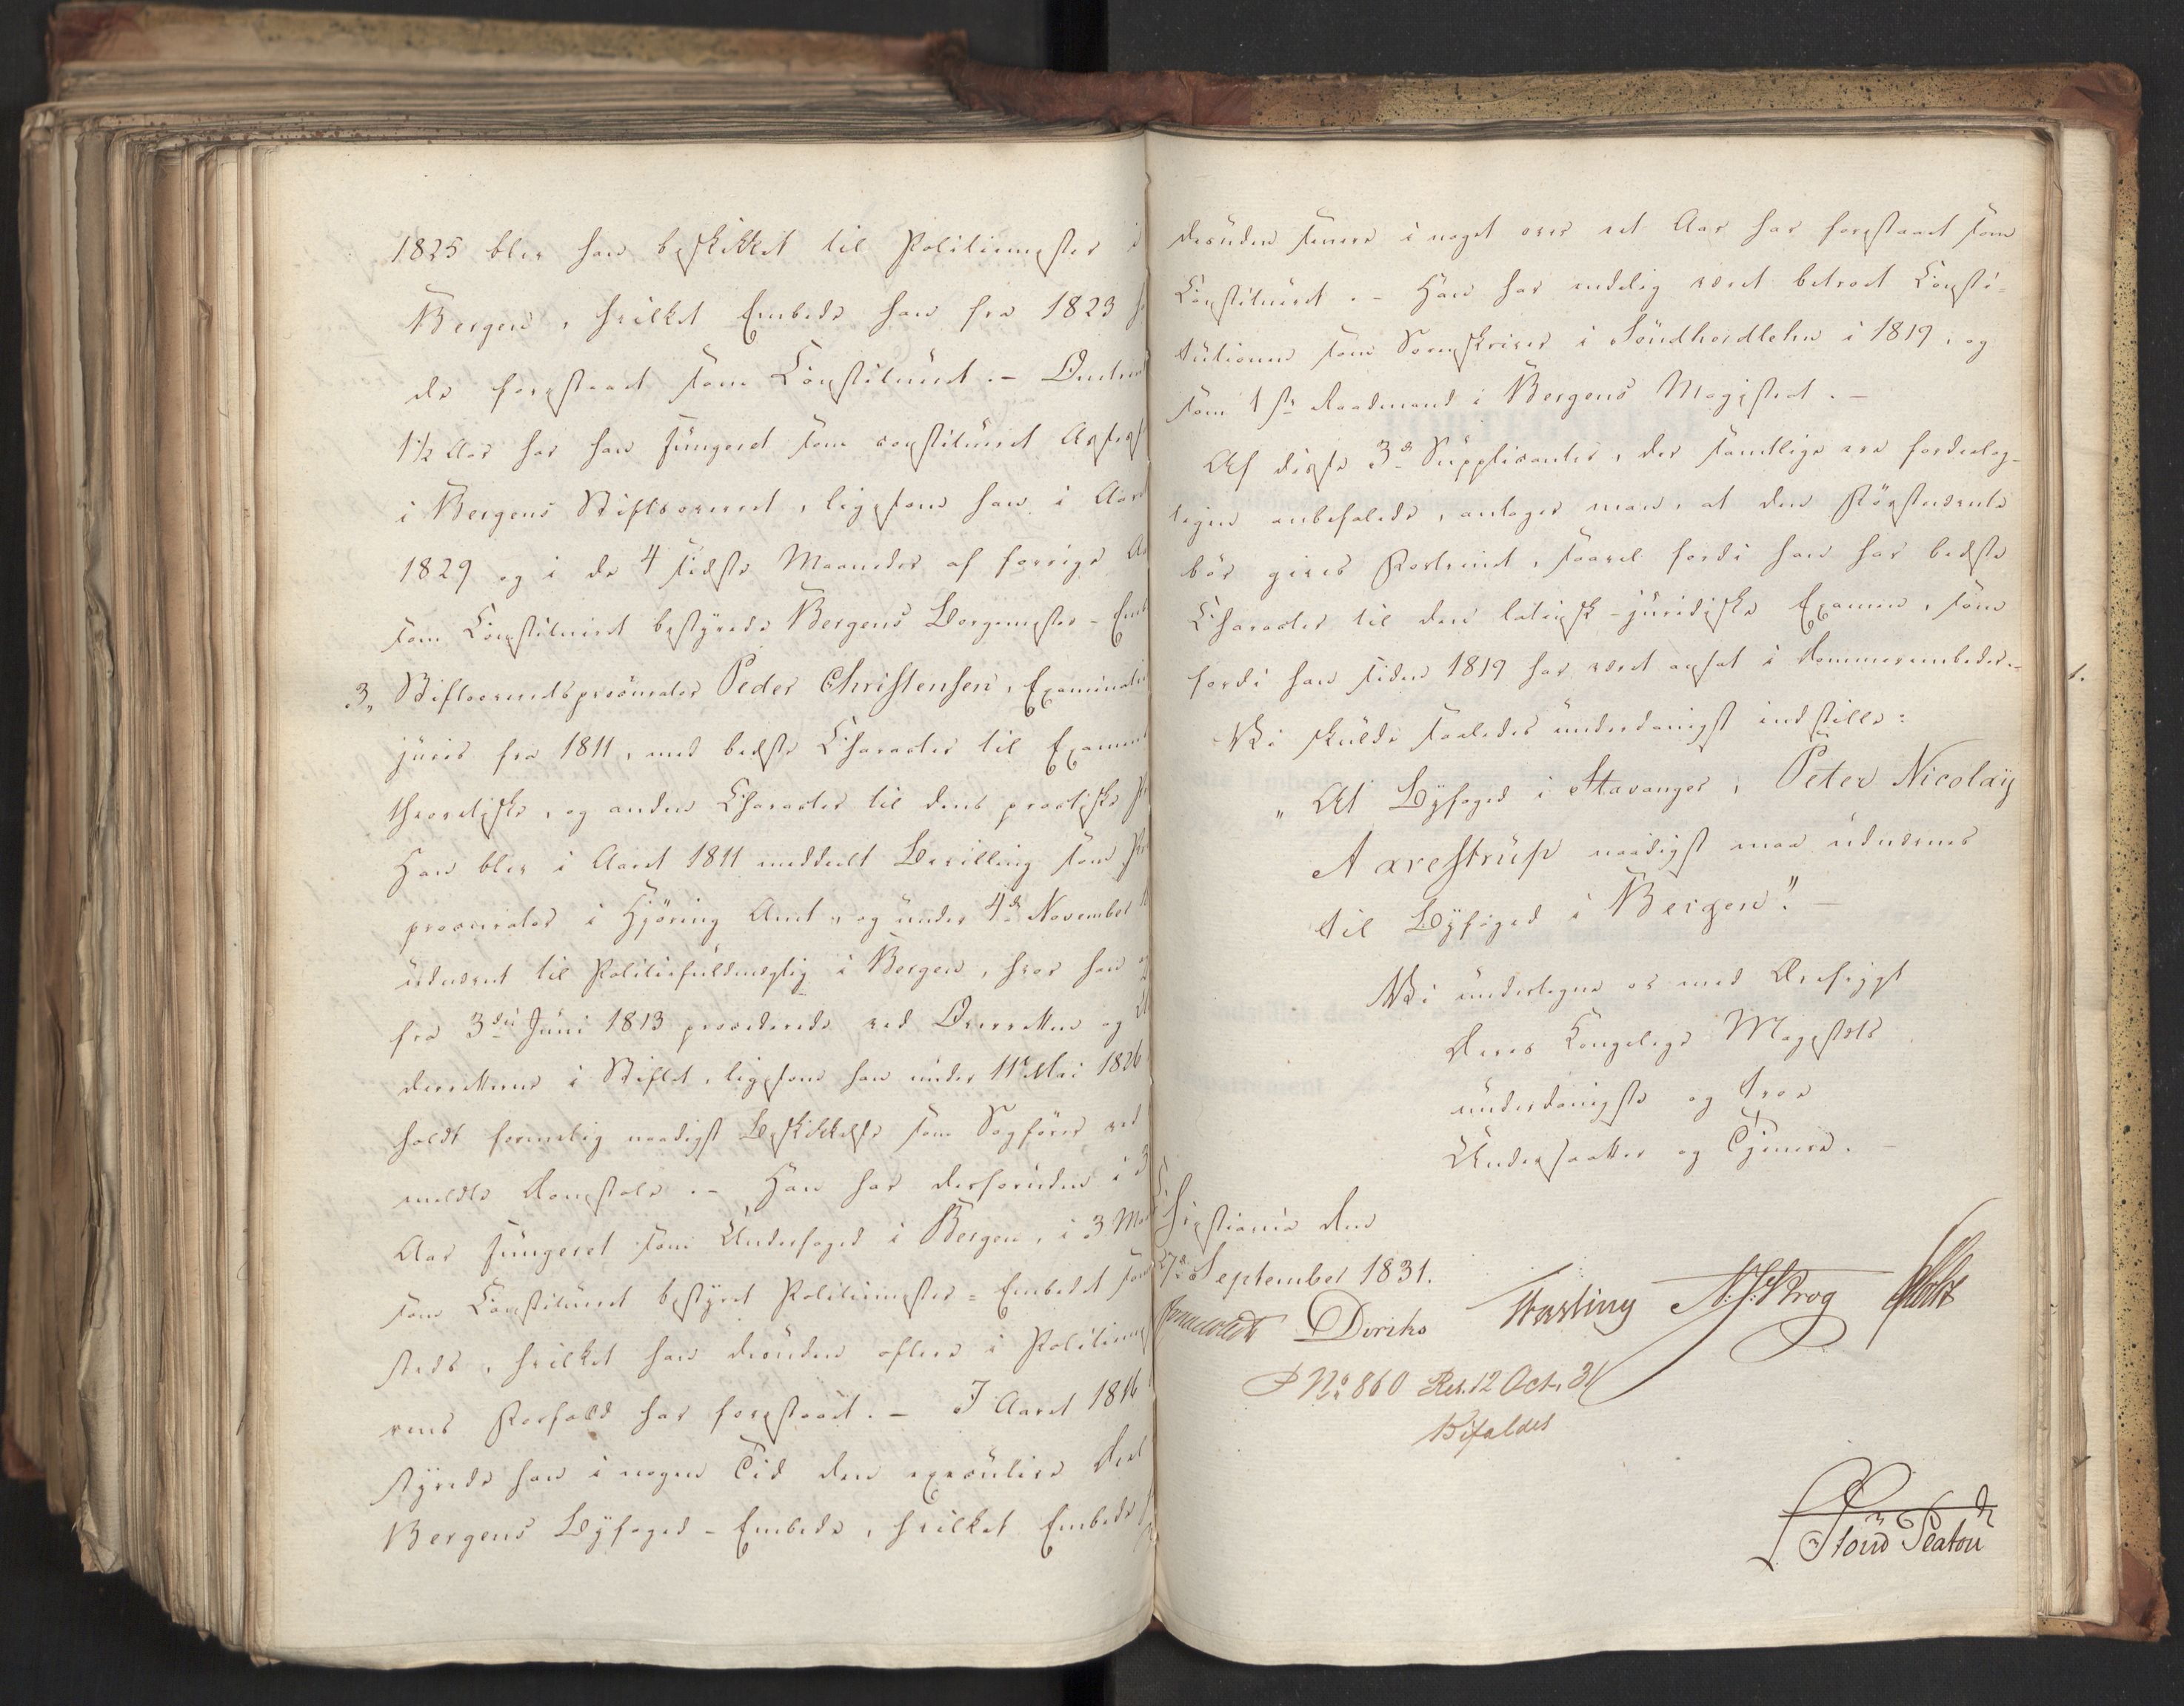 1825 blev han beskikket til Politiemester i
Bergen, hvilket Embede han fra 1823
de forestaaet som Constitueret. – Omtrent
1½ Aar har han fungeret som constitueret Assess
i Bergens Stiftsoverret, ligesom han i Aaret
1829 og i de 4 sidste Maaneder af forrige
som Constitueret bestyrede Bergens Borgemester-Emb
3, Stiftsoverretsprocurator Peder Christensen, Examinatus
juris fra 1811, med bedste Character til Examens
theoretiske, og anden Character til dens practiske
Han blev i Aaret 1811 meddeelt Bevilling som
procurator i Hjøring Amt, og under 4de November
udnævnt til Politiefuldmægtig i Bergen, hvor han
fra 3die Juni 1813 procederede ved Overretten og
derretterne i Stiftet, ligesom han under 11te Mai 1826
holdt formelig naadigst Beskikkelse som Sagfører ved
meldte Domstole. – Han har desforuden i 3
Aar fungeret som Underfoged i Bergen, i 3
som Constitueret bestyret Politiemester-Embedet
steds, hvilket han desuden oftere i Politiemes
rens Forfald har forestaaet. – I Aaret 1816
styrede han i nogen Tid den executive Deel
Bergens Byfoged-Embede, hvilket Embede
desuden senere i noget over eet Aar har forestaaet som
Constitueret. – Han har endelig været betroet Consti-
tutionen som Sorenskriver i Söndhordlehn i 1819, og
som 1ste Raadmand i Bergens Magistrat. –
Af disse 3de Supplicanter, der samtlige ere fordeelag-
tigen anbefalede, antager man, at den Førstnævnte
bør gives Fortrinet, saavel fordi han har bedste
Character til den latinsk-juridiske Examen, som
fordi han siden 1819 har været ansat i Dommerembeder.-
Vi skulde saaledes underdanigst indstille:
„At Byfoged i Stavanger, Peter Nicolay
Aarestrup naadigst maa udnævnes
til Byfoged i Bergen". –
Vi undertegne os med Ærefrygt
Deres Kongelige Majestæts
underdanigste og troe
Undersaatter og Tjenere. –
Christiania den
27de September 1831.
Diriks Vogt
N: J: Krog
P No 860 Res. 12 Oct. 31
Bifaldet